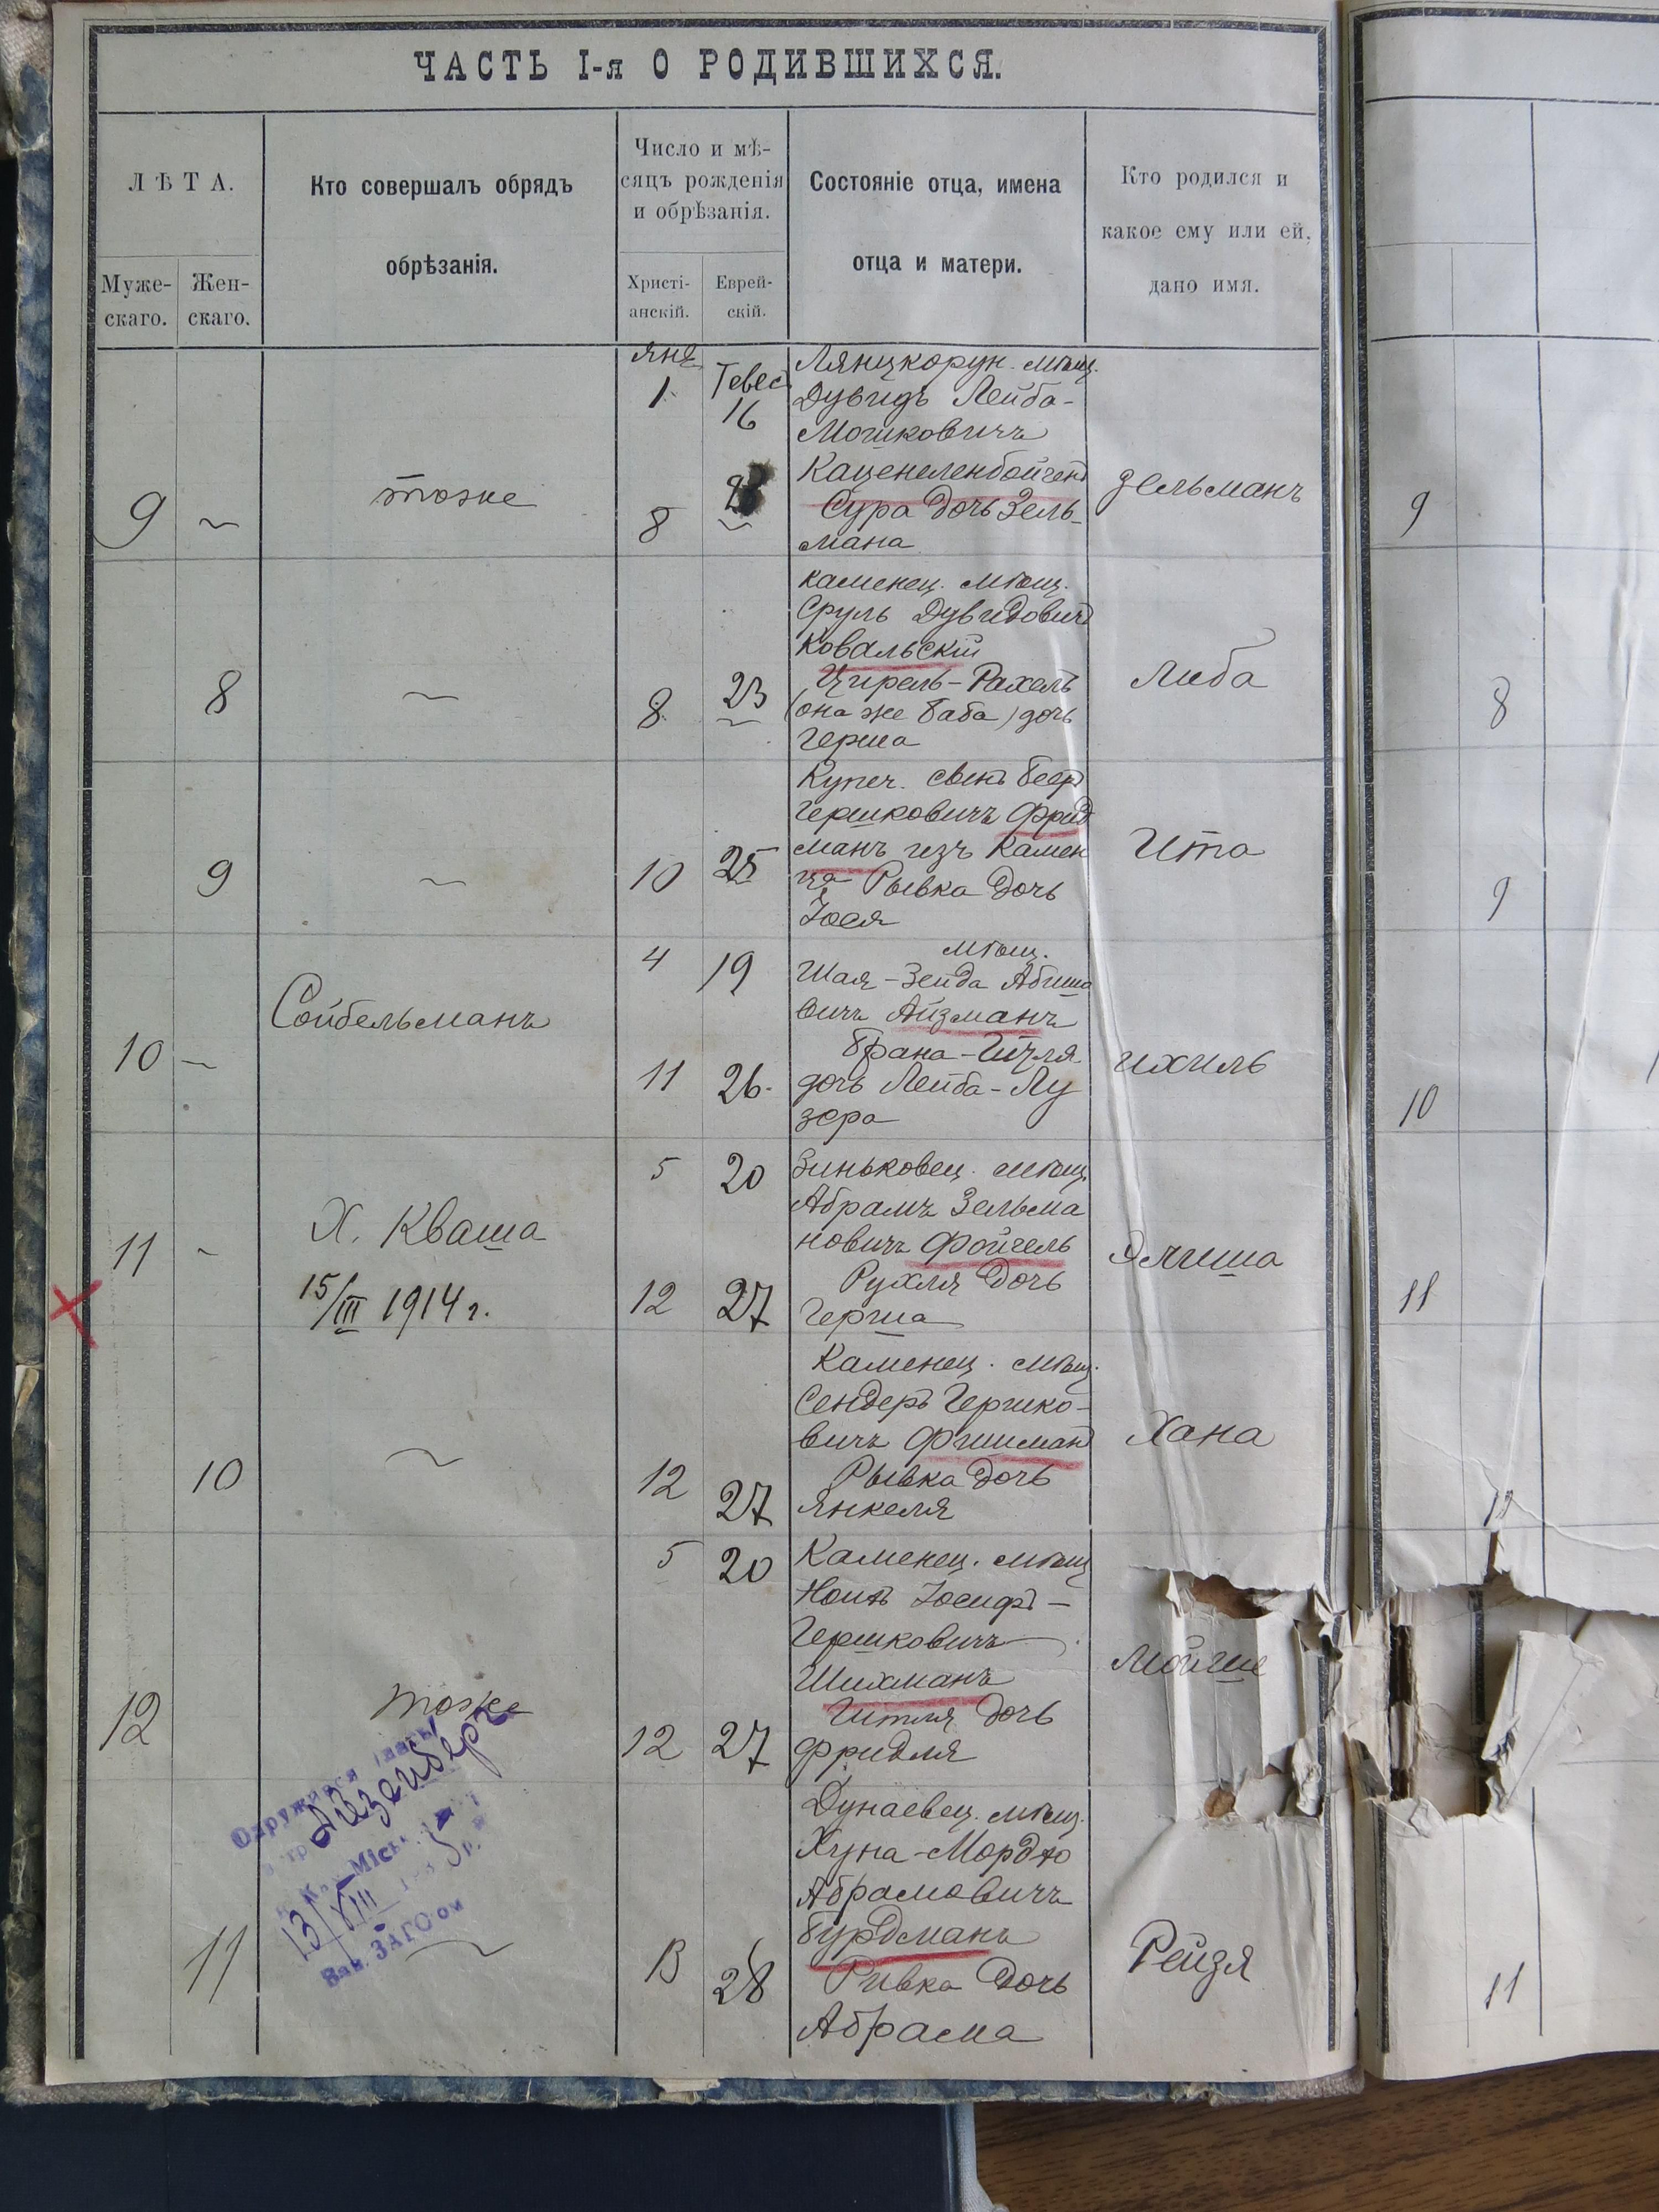 ЧАСТЬ I-я О РОДИВШИХСЯ.
ЛѢТА.
Муже-
скаго.
Жен-
скаго.
Кто совершалъ обрядъ
обрѣзанія.
Число и мѣ-
сяцъ рожденія
и обрѣзанія.
Христі-
анскій.
Еврей-
скій.
Состояніе отца, имена
отца и матери.
Кто родился и
какое ему или ей,
дано имя.
9 ~
тоже
Янв
1
8
Тевес
16
23
Лянцкорун. мѣщ.
Дувидъ Лейба-
Мошковичъ
Каценеленбойгенъ
Сура дочь Зель-
мана
Зельманъ
9
8
~
8
23
Каменец. мѣщ.
Сруль Дувидовичъ
Ковальскій
Цирель-Рахель
(она же Баба) дочь
Герша
Либа
8
9
~
10
25
Купеч. сынъ Беръ
Гершковичъ Фрид
манъ изъ Камен
ца Рывка дочь
Іося
Ита
9
10 ~
Сойбельманъ
4
11
19
26.
мѣщ.
Шая-Зейда Абиша
вичъ Айзманъ
Брана-Гитля
дочь Лейба-Лу
зера
Ихиль
10
11 ~
Х. Кваша
15/III 1914 г.
5
12
20
27
Зиньковец. мѣщ.
Абрамъ Зельма
новичъ Фойгель
Рухля дочь
Герша
Элиша
11
10
~
12
27
Каменец. мѣщ.
Сендеръ Гершко-
вичъ Фишманъ
Рывка дочь
Янкеля
Хана
12
тоже
5
12
20
27
Каменец. мѣщ
Іосифъ-
Гершковичъ
Шихманъ
Итля дочь
Фридля
Мойше
11
~
13
28
Дунаевец. мѣщ.
Хуна-Мордко
Абрамовичъ
Гурдманъ
Ривка дочь
Абрама
Рейзя
11
Айзенберг
13/VIII
Зав. ЗАГС'ом